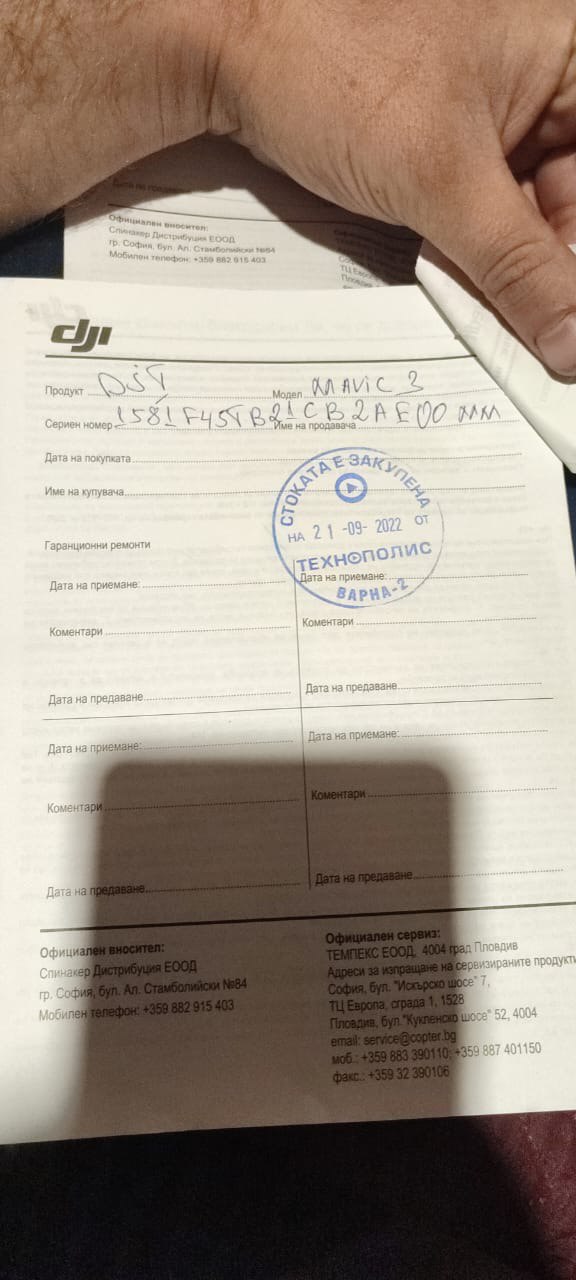 Официален вносител:
Спинакер Дистрибуция ЕООД
гр. София, бул. Ал. Стамболийски №84
Мобилен телефон: +359 882 915 403
dji
Продукт DJI Модел MAVIC 3
Сериен номер 1581F45TB21CB2AE00MM Име на продавача
Дата на покупката
Име на купувача
СТОКАТА Е ЗАКУПЕНА
НА 21-09-2022 ОТ
ТЕХНОПОЛИС
ВАРНА-2
Гаранционни ремонти
Дата на приемане: Дата на приемане:
Коментари Коментари
Дата на предаване Дата на предаване
Дата на приемане: Дата на приемане:
Коментари Коментари
Дата на предаване Дата на предаване
Официален вносител:
Спинакер Дистрибуция ЕООД
гр. София, бул. Ал. Стамболийски №84
Мобилен телефон: +359 882 915 403
Официален сервиз:
ТЕМПЕКС ЕООД, 4004 град Пловдив
Адреси за изпращане на сервизираните продукти
София, бул. "Искърско шосе" 7,
ТЦ Европа, сграда 1, 1528
Пловдив, бул."Кукленско шосе" 52, 4004
email: service@copter.bg
моб.: +359 883 390110; +359 887 401150
факс.: +359 32 390106